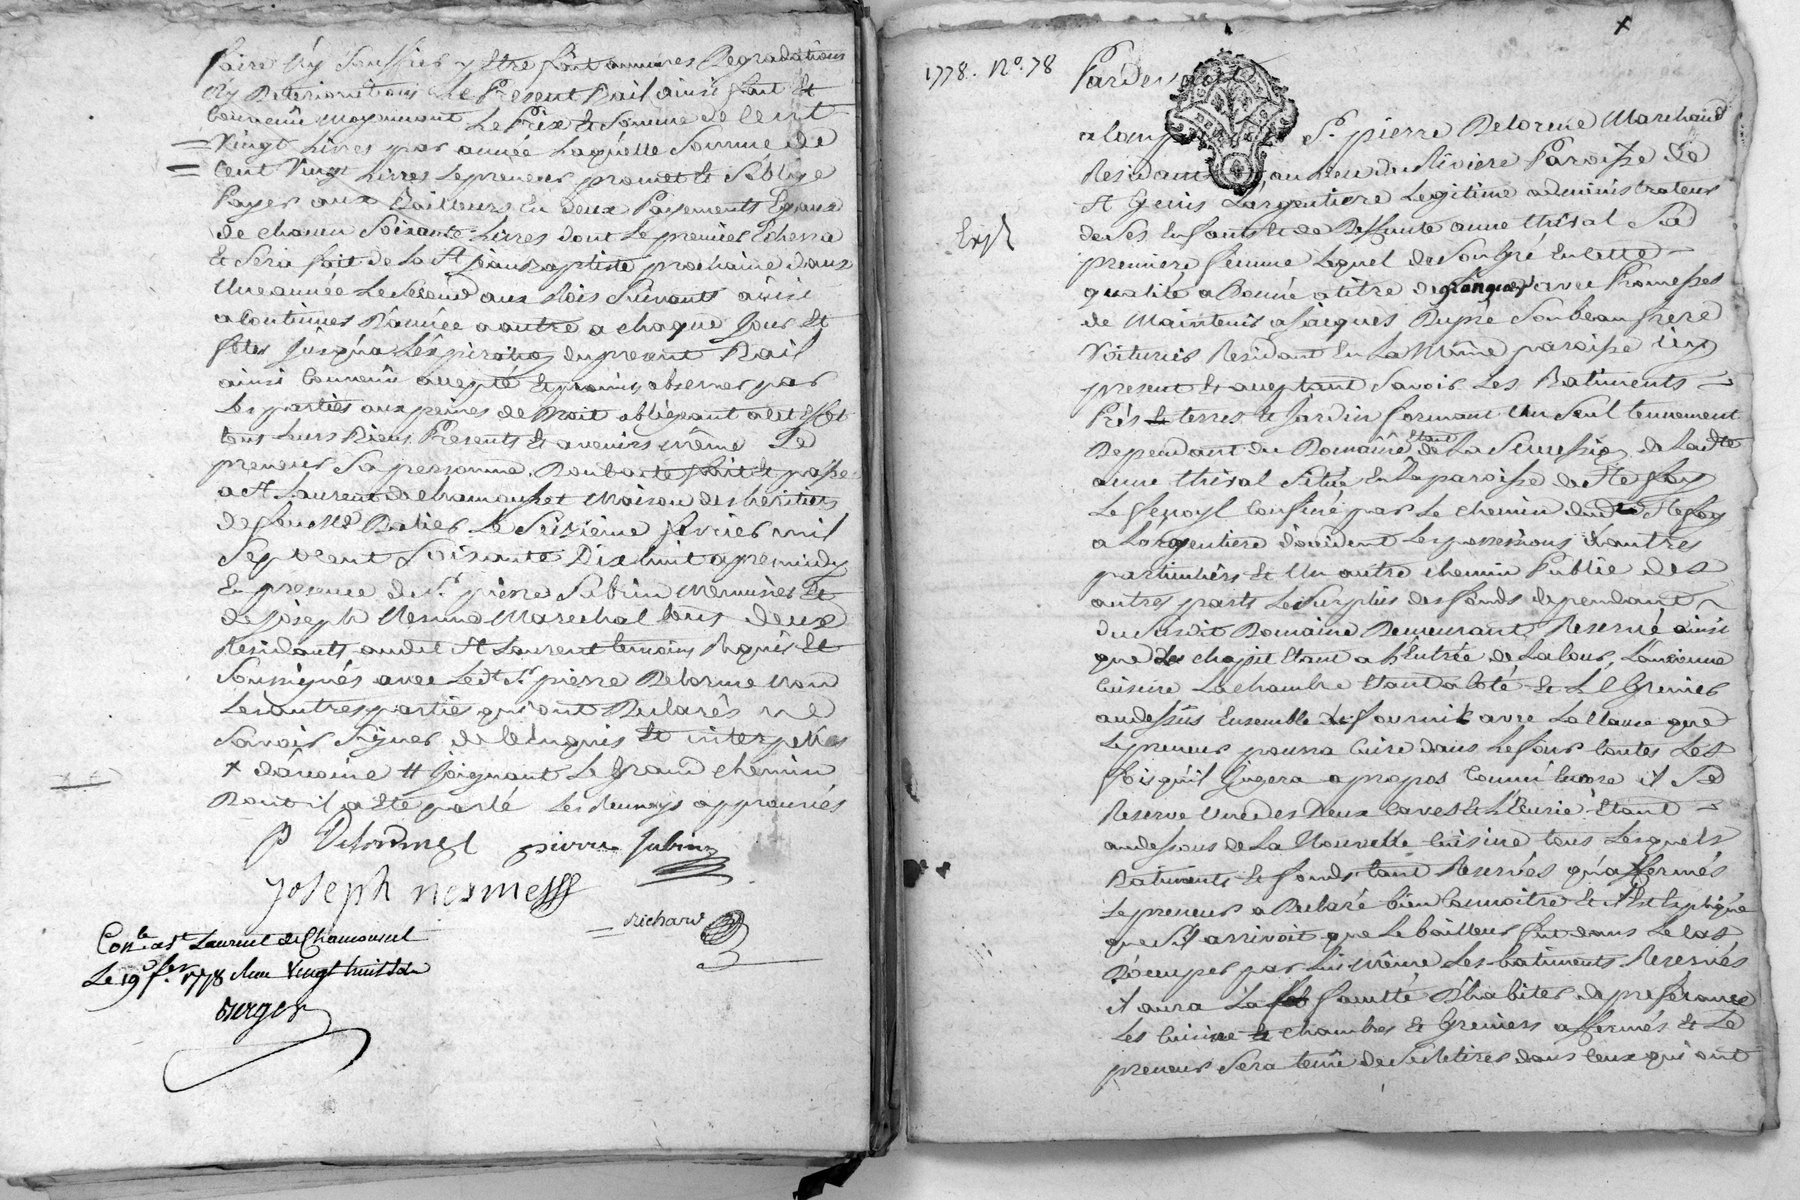 faire n'y souffrir y être fait aucunes Degradations
n'y Deteriorations Le Present Bail ainsi fait Et
Convenû moyennant Le Prix & Somme de Cent
Vingt Livres par année Laquelle Somme de
Cent Vingt Livres Le preneur promet & S'oblige
Payer aux Bailleurs En deux Payements Egaux
de chacun Soixante Livres dont Le premier Echerra
Et Sera fait de la St Jean Baptiste prochaine dans
Une année Le Second aux Nois Suivants ainsi
a Continuer D'année a autre a chaque Jour Et
fêtes Jusqu'a L'expiration du present Bail
ainsi Convenû accepté & promis observer par
Les parties aux peines de Droit obligeant a cet Effet
tous Leurs Biens Presents & avenirs même Le
preneur Sa personne. Dont acte fait & passé
a St Laurent de Chamousset Maison des heritiers
de Batier Le Seizième fevrier mil
Sept Cent Soixante Dix huit apremidy
En presence de Sr. pierre Subrin Menuisier Et
de Joseph Nesme Marechal tous deux
Residants audit St Laurent temoins Requis Et
Soussignés avec Le dt Sr. pierre Delorme Non
Les autres parties qui ont Declarés ne
Savoir Signer de ce Enquis Et interpellés
Joignant Le Grand chemin
Dont il a Eté parlé approuvés
P Delorme pierre Subrin
Joseph nesme
Richard
Conlé a St Laurent de Chamousset
Le 19 fer. 1778
1778. No. 78
Pardevant
Sr. pierre Delorme Marchand
Residant au lieu du Riviere Paroisse de
St Genis L'argentiere Legitime administrateur
de Ses Enfants & de Deffunte anne thival Sa
premiere femme Lequel de Son Gré En Cette
qualité a Donné a titre de avec Promesses
de Maintenir a Jacques Dupre Son beau frere
Voiturier Residant En La Même paroisse icy
present & acceptant Savoir Les Batiments
Prés & terres & Jardin formant Un Seul tennement
Dependant du Domaine étant de La Succession de Ladte
anne thival Situé En La paroisse de Ste foy
L'argentiere Confiné par Le chemin dudt Ste foy
a L'argentiere d'occident Les possessions d'autres
particuliers & Un autre chemin Public des
autres parts Le Surplus des fonds dependant
du Susdit Domaine Demeurant Reservé ainsi
que Le chapit Etant a L'Entrée de La Cour, L'ancienne
Cuisine La chambre Etant a Coté & Le Grenier
audessus Ensemble Le fournil avec La Clause que
Le preneur pourra Cuire dans Le four toutes Les
fois qu'il Jugera a propos Comme Encore il Se
Reserve Une des Deux Caves & L'Ecurie Etant
audessous de La Nouvelle Cuisine tous Lesquels
Batiments & fonds tant Reservés qu'affermés
Le preneur a Declaré bien Connoitre & Est Expliqué
que S'il arrivoit que Le bailleur fut dans Le Cas
D'occuper par Lui même Les batiments Reservés
il aura La faculté D'habiter de preference
Les Cuisine & chambres & Greniers affermés & Le
preneur Sera tenû de Se Retirer dans Ceux qui ont